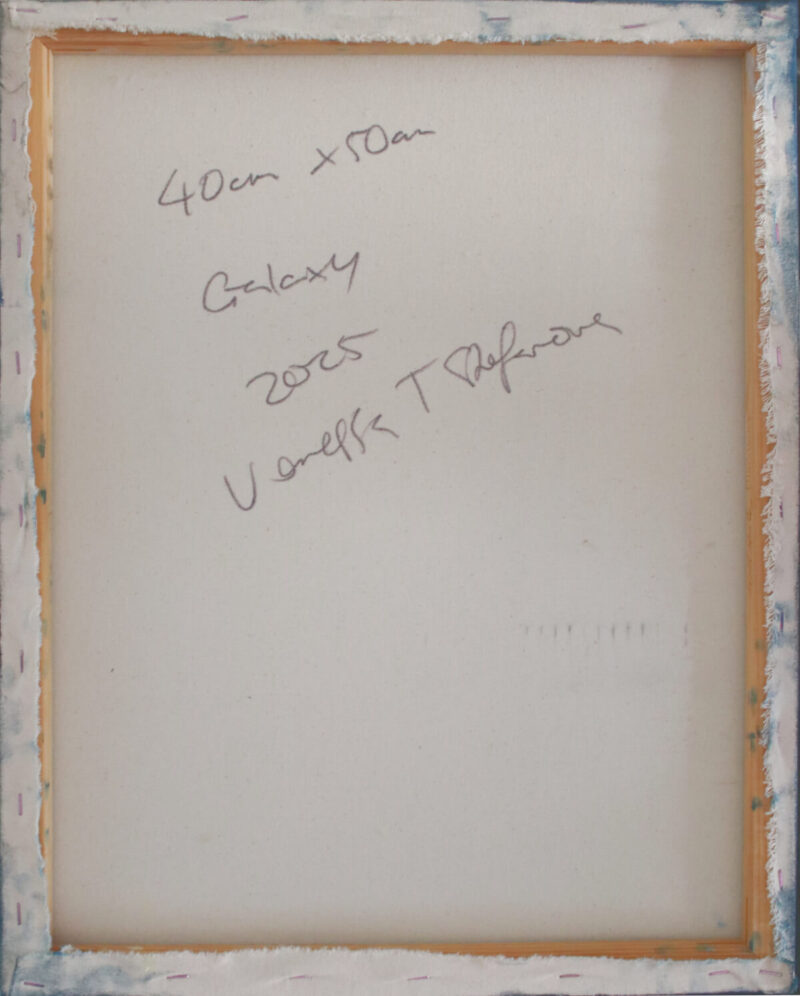 40cm x50cm
Galaxy
2025
Vanessa T Stefanova